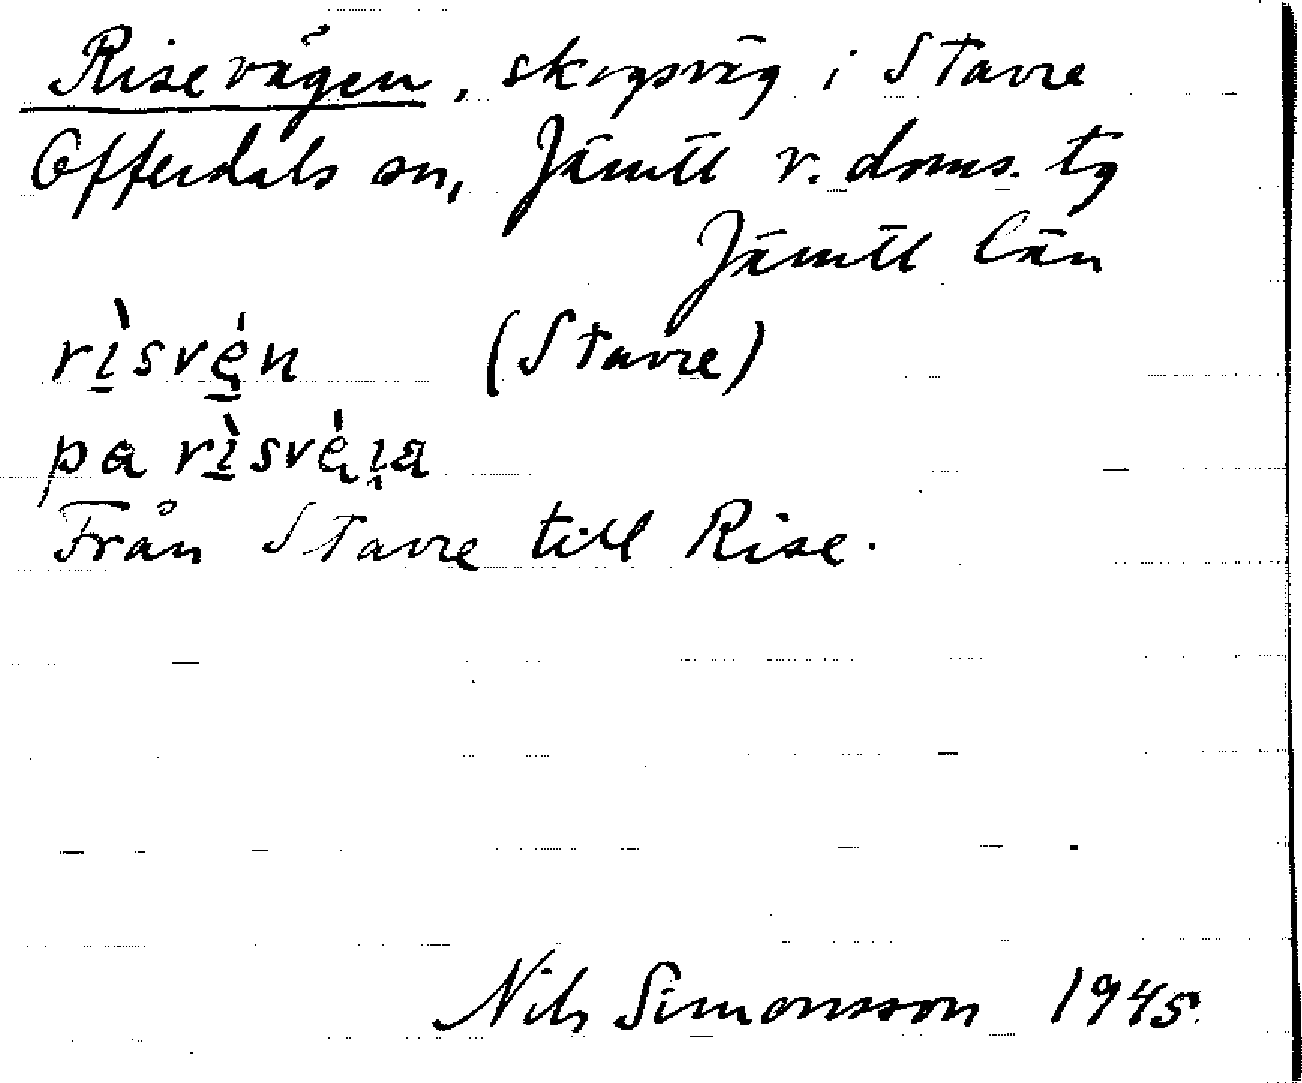 Risevägen, skogsväg i Stavre
Offerdals sn, Jämtl v. doms. tg
Jämtl län
rìsvę́n (Stavre)
pa rìsvę́ia
Från Stavre till Rise.
Nils Simonsson 1945